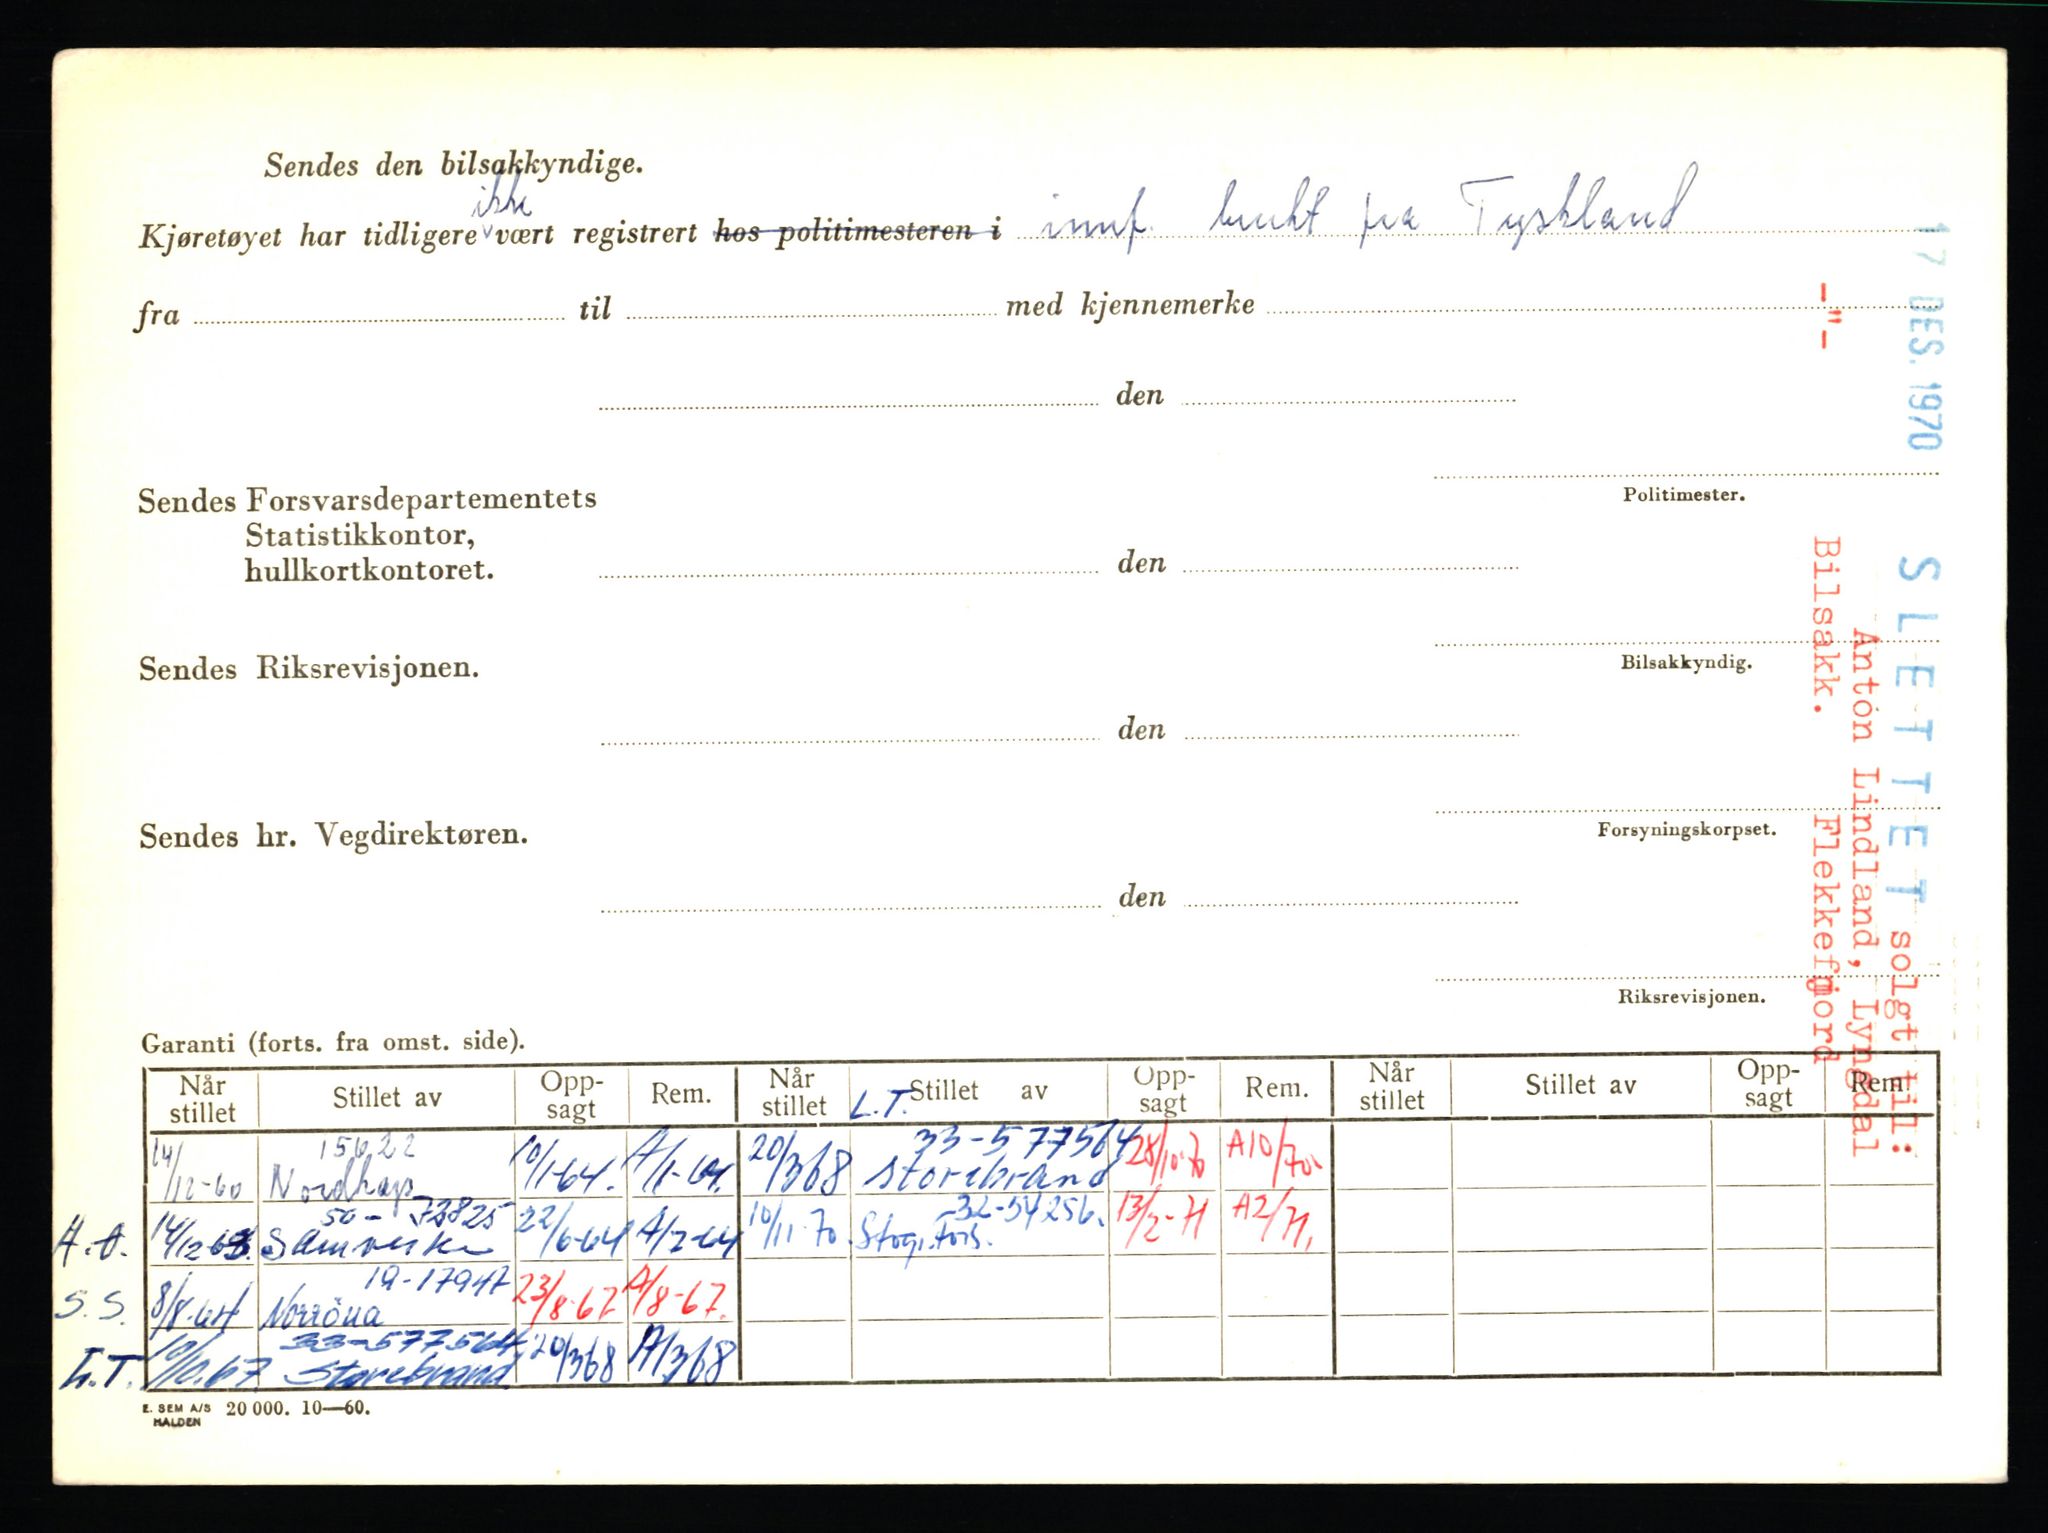 Sendes den bilsakkyndige.
Kjøretøyet har tidligere ikke vært registrert hos politimesteren i innf. brukt fra Tyskland
fra til med kjennemerke
den
Politimester.
Sendes Forsvarsdepartementets
Statistikkontor,
hullkortkontoret.
den
Bilsakkyndig.
Sendes Riksrevisjonen.
den
Forsyningskorpset.
Sendes hr. Vegdirektøren.
den
Riksrevisjonen.
17 DES. 1970
SLETTET solgt til:
Anton Lindland, Lyngdal
-"- Bilsakk. Flekkefjord
Garanti (forts. fra omst. side).
Når stillet Stillet av Opp-sagt Rem. Når stillet L.T. Stillet av Opp-sagt Rem. Når stillet Stillet av Opp-sagt Rem.
14/12-60 15622 Nordkap 10/1-64. A/1-64. 20/368 33-577564 Storebrand 28/10-70 A10/70.
H.O. 14/12-63. 50-73825 Samvirke 22/6-64 A/7-64 10/11-70. 32-54256. 13/2-71 A2/71.
S.S. 8/8-64 19-17947 Norröna 23/8-67 A/8-67.
L.T. 10/10.67 33-577564 Storebrand 20/368 A/368
E. SEM A/S HALDEN 20 000. 10—60.